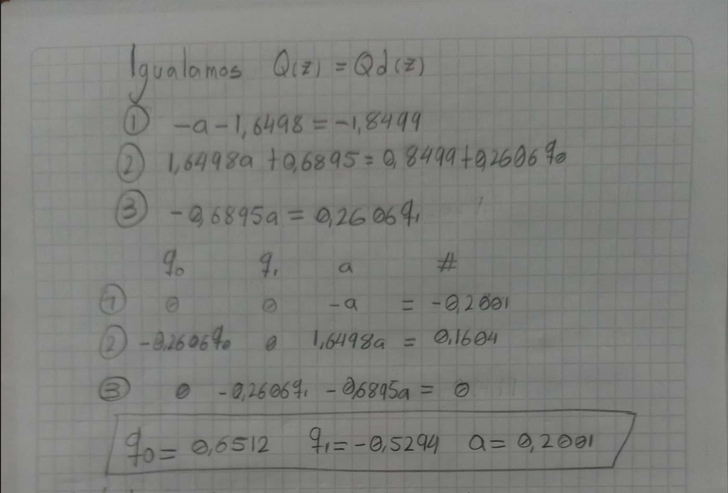 Igualamos Q(z) = Qd(z)
① -a - 1,6498 = -1,8499
② 1,6498a + 0,6895 = 0,8499 + 0,2606 q₀
③ -0,6895a = 0,2606 q₁
q₀ q₁ a #
① 0 0 -a = -0,2001
② -0,2606 q₀ 0 1,6498a = 0,1604
③ 0 -0,2606 q₁ -0,6895a = 0
q₀ = 0,6512 q₁ = -0,5294 a = 0,2001